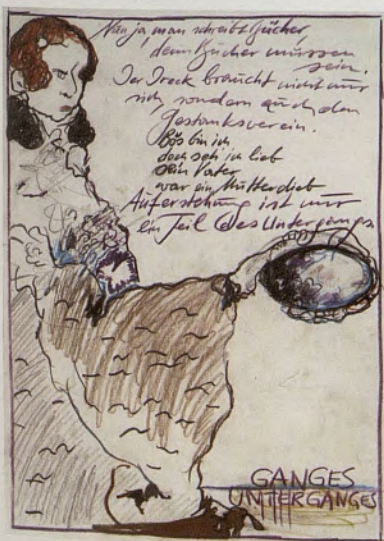 Nun ja, man schreibt Bücher,
denn Bücher müssen
sein.
Der Dreck braucht nicht nur
sich, sondern auch den
Gestanksverein.
Bös bin ich
doch seh ich lieb
sein Vater
war ein Mutterdieb
Auferstehung ist nur
ein Teil des Untergangs.
GANGES
UNTERGANGES